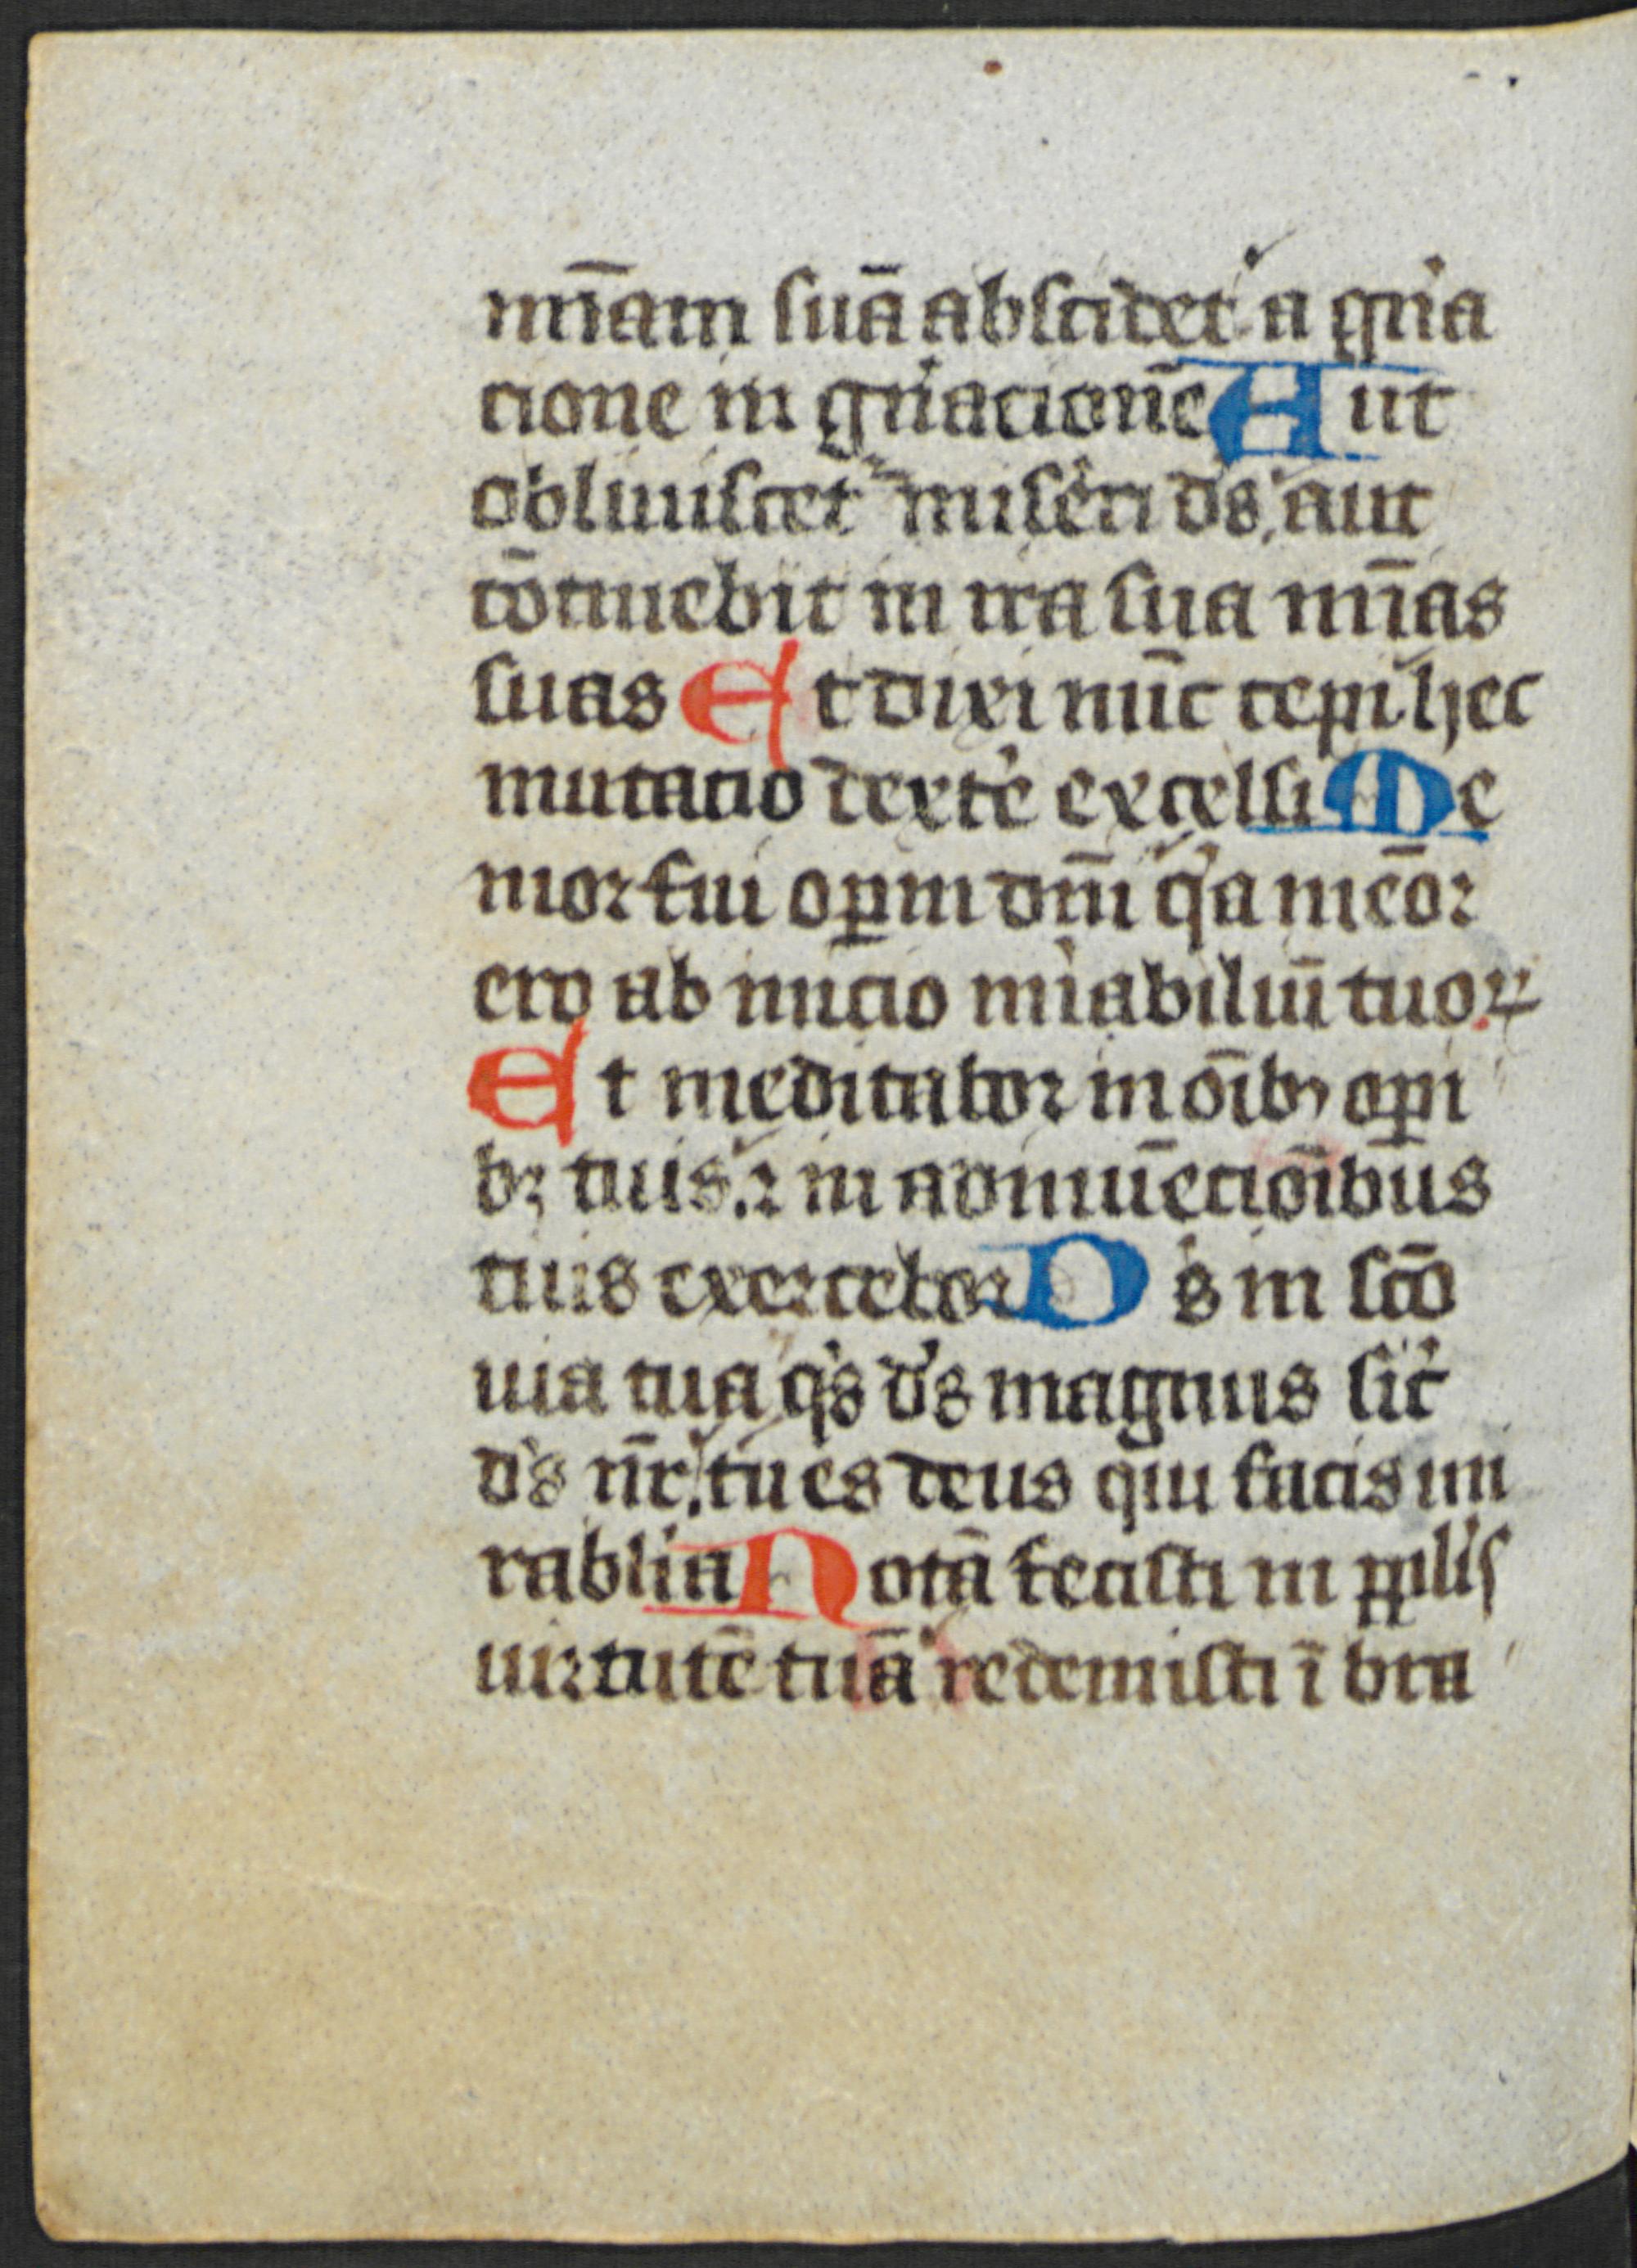 mīam suā abscidet a gn̄a
cione in gn̄acionē Aut
obliuiscet᷑ miseri ds̄ aut
cōtinebit in ira sua mīas
suas Et dixi nūc cepi hec
mutacio dext᷑e excelsi Me
mor fui oꝑum dn̄i q̇a mēor
ero ab inicio mi᷑abiliū tuoꝝ
Et meditabor in oīb⁊ oꝑi
b⁊ tuis ⁊ in adinuēcioībus
tuis exercebor Ds in sc̄o
uia tua q̇s ds̄ magnus sic᷑
ds̄ nr̄ tu es deus qui facis mi
rablia Notā fecisti in ꝑꝑlis
uirtutē tuā redemisti ī bra